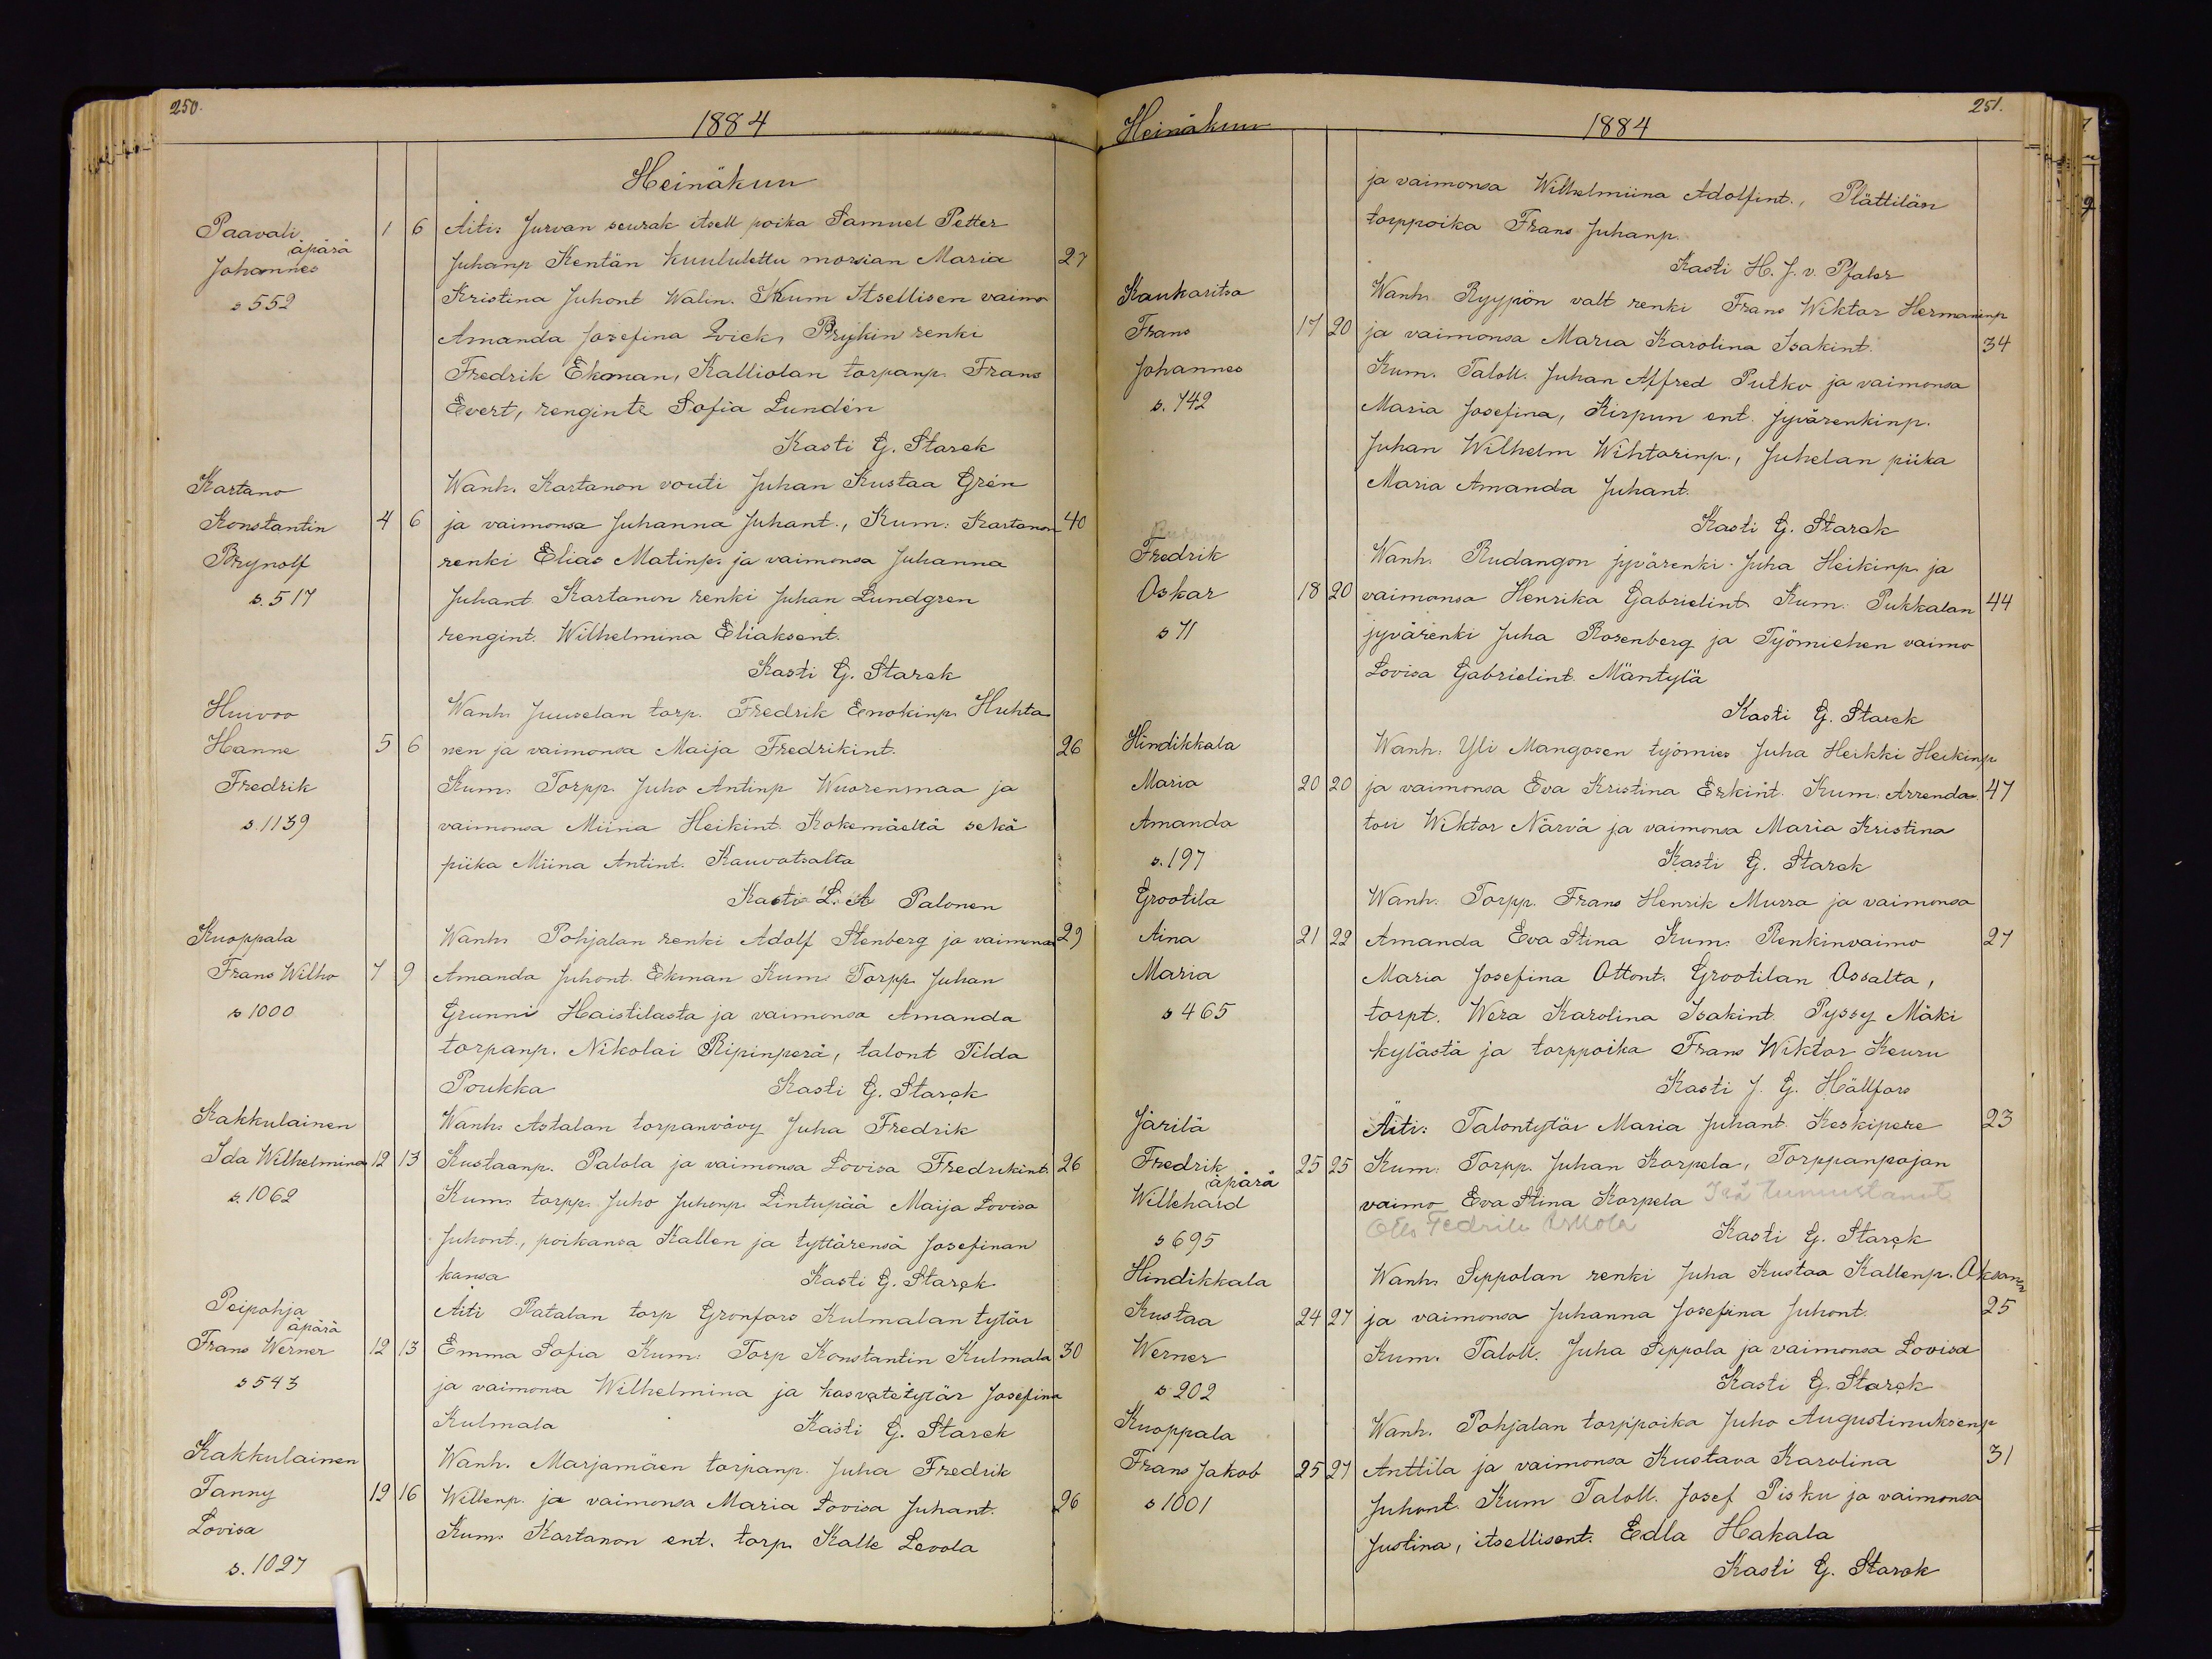 250.
1884
Heinäkuu
Paavali 1 6 Äiti: Jurvan seurak itsell poika Samuel Petter
äpärä
Johannes Juhanp Kentän kuulutettu morsian Maria 27
s 552 Kristina Juhont Walin. Kum Itsellisen vaimo
Amanda Josefina Qvick, Prykin renki
Fredrik Ekman, Kalliolan torpanp. Frans
Evert, rengint. Sofia Lundén
Kasti G. Starck
Kartano Wanh. Kartanon vouti Juhan Kustaa Grén
Konstantin 4 6 ja vaimonsa Juhanna Juhant., Kum: Kartanon 40
Brynolf renki Elias Matinp. ja vaimonsa Juhanna
s. 517 Juhant Kartanon renki Juhan Lundgren
rengint. Wilhelmina Eliaksent.
Kasti G. Starck
Huivoo Wanh. Juuselan torp. Fredrik Enokinp. Huhta
Hanne 5 6 nen ja vaimonsa Maija Fredrikint. 26
Fredrik Kum. Torpp. Juho Antinp Wuorenmaa ja
s. 1139 vaimonsa Miina Heikint. Kokemäeltä sekä
piika Miina Antint. Kauvatsalta
Kasti L. A Palonen
Kuoppala Wanh. Pohjalan renki Adolf Stenberg ja vaimonsa 29
Frans Wilho 7 9 Amanda Juhont. Ekman Kum: Torpp. Juhan
s 1000 Grunni Haistilasta ja vaimonsa Amanda
torpanp. Nikolai Ripinperä, talont Tilda
Poukka Kasti G. Starck
Kakkulainen Wanh. Astalan torpanvävy Juha Fredrik
Ida Wilhelmina 12 13 Kustaanp. Palola ja vaimonsa Lovisa Fredrikint. 26
s. 1062 Kum: torpp. Juho Juhonp. Lintupää Maija Lovisa
Juhont., poikansa Kallen ja tyttärensä Josefinan
kansa Kasti G. Starck
Peipohja Äiti Ratalan torp Gronfors Kulmalan tytär
äpärä
Frans Werner 12 13 Emma Sofia Kum: Torp Konstantin Kulmala 30
s 543 ja vaimonsa Wilhelmina ja kasvatetytär Josefina
Kulmala Kasti G. Starck
Kakkulainen Wanh. Marjamäen torpanp. Juha Fredrik
Fanny 12 16 Willenp. ja vaimonsa Maria Lovisa Juhant. 26
Lovisa Kum. Kartanon ent. torp. Kalle Levola
s. 1027
251.
Heinäkuu 1884
ja vaimonsa Wilhelmiina Adolfint., Plättilän
torppoika Frans Juhanp.
Kasti H. J. v. Pfaler
Kaukaritsa Wanh. Ryypön valt renki Frans Wiktor Hermaninp
Frans 17 20 ja vaimonsa Maria Karolina Isakint. 34
Johannes Kum. Taloll. Juhan Alfred Putko ja vaimonsa
s. 742 Maria Josefina, Kirpun ent. jyvärenkinp.
Juhan Wilhelm Wihtorinp., Juhelan piika
Maria Amanda Juhant.
Kasti G. Starck
Fredrik Wanh. Rudangon jyvärenki Juha Heikinp. ja
Oskar 18 20 vaimonsa Henrika Gabrielint. Kum: Pukkalan 44
s 71 jyvärenki Juha Rosenberg ja Työmiehen vaimo
Lovisa Gabrielint. Mäntylä
Kasti G. Starck
Hindikkala Wanh: Yli Mangosen työmies Juha Heikki Heikinp
Maria 20 20 ja vaimonsa Eva Kristina Erkint. Kum: Arrenda 47
Amanda tori Wiktor Närvä ja vaimonsa Maria Kristina
s. 197 Kasti G. Starck
Grootila Wanh. Torpp. Frans Henrik Murra ja vaimonsa
Aina 21 22 Amanda Eva Stina Kum: Renkinvaimo 27
Maria Maria Josefina Ottont. Grootilan Ossalta,
s 465 torpt. Wera Karolina Isakint. Pyssy Mäki
kylästä ja torppoika Frans Wiktor Keuru
Kasti J. G. Hällfors
Järilä Äiti: Talontytär Maria Juhant. Keskipere 23
Fredrik 25 25 Kum: Torpp. Juhan Korpela, Torppanpojan
äpärä
Willehard vaimo Eva Stina Korpela Isä tunnustanut
Otto Fedrik Askola
s 695 Kasti G. Starck
Hindikkala Wanh. Seppolan renki Juha Kustaa Kallenp. Oksanen
Kustaa 24 27 ja vaimonsa Juhanna Josefina Juhont. 25
Werner Kum. Taloll. Juha Seppola ja vaimonsa Lovisa
s 202 Kasti G. Starck
Kuoppala Wanh. Pohjalan torppoika Juho Augustinuksenp
Frans Jakob 25 27 Anttila ja vaimonsa Kustava Karolina 31
s 1001 Juhont. Kum Taloll. Josef Pisku ja vaimonsa
Justina, itsellisent. Edla Hakala
Kasti G. Starck